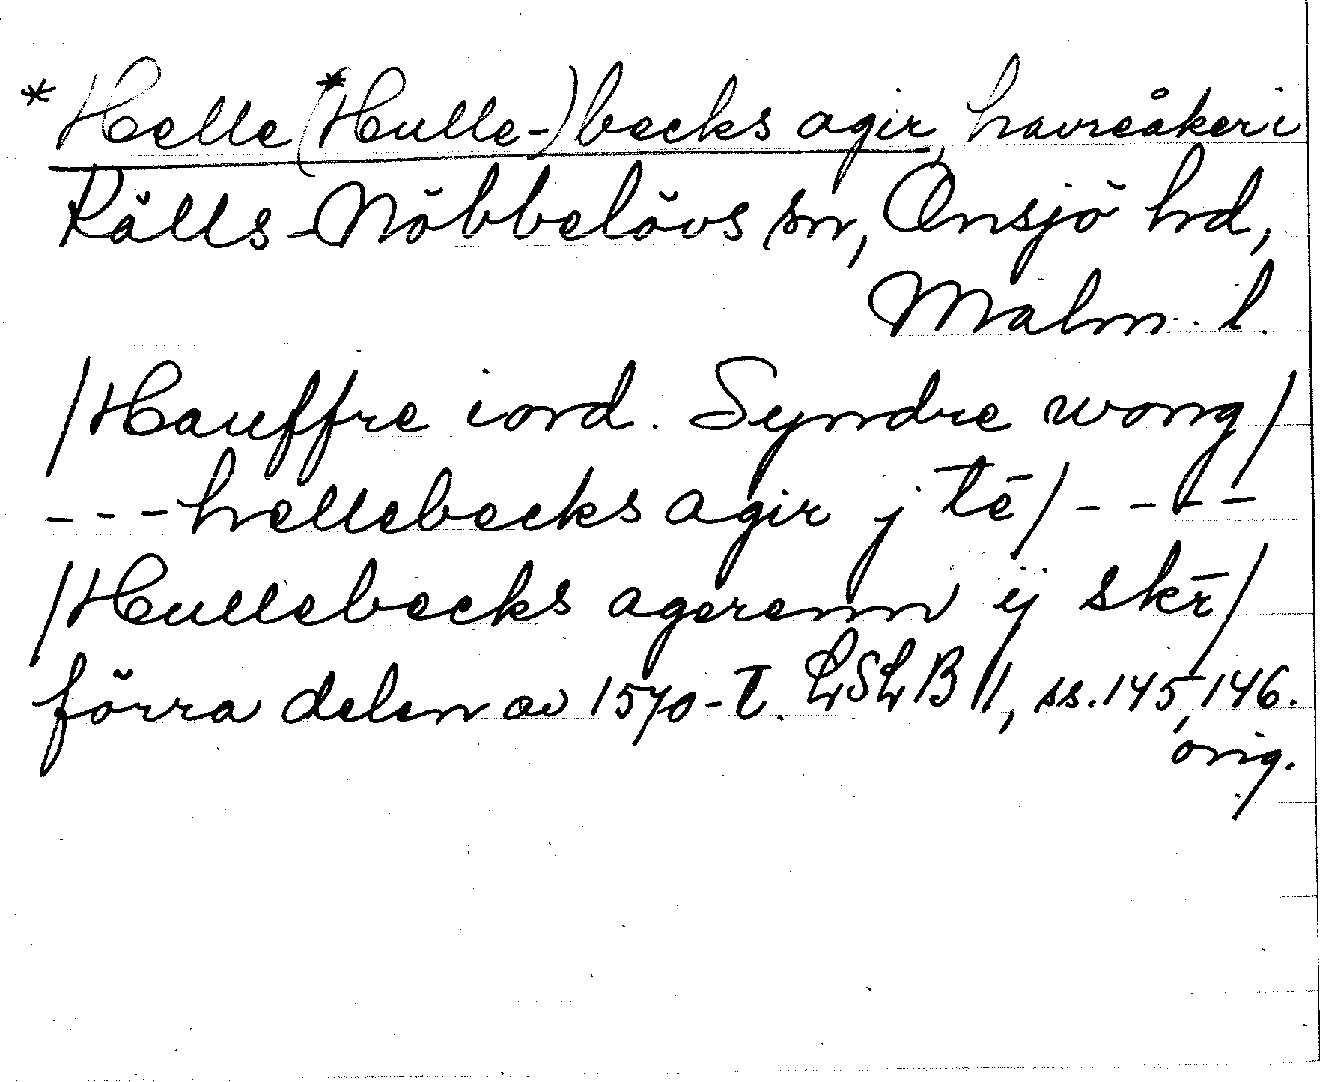 *Helle(*Hulle-)becks agir, havreåker i
Källs-Nöbbelövs sn, Onsjö hd,
Malm. l.
/Hauffre iord. Syndre wong/
---hellebecks agir j tē/----
/Hullebecks agerenn ij skr̄/
förra delen av 1570-t. LSLB II, ss. 145, 146.
orig.